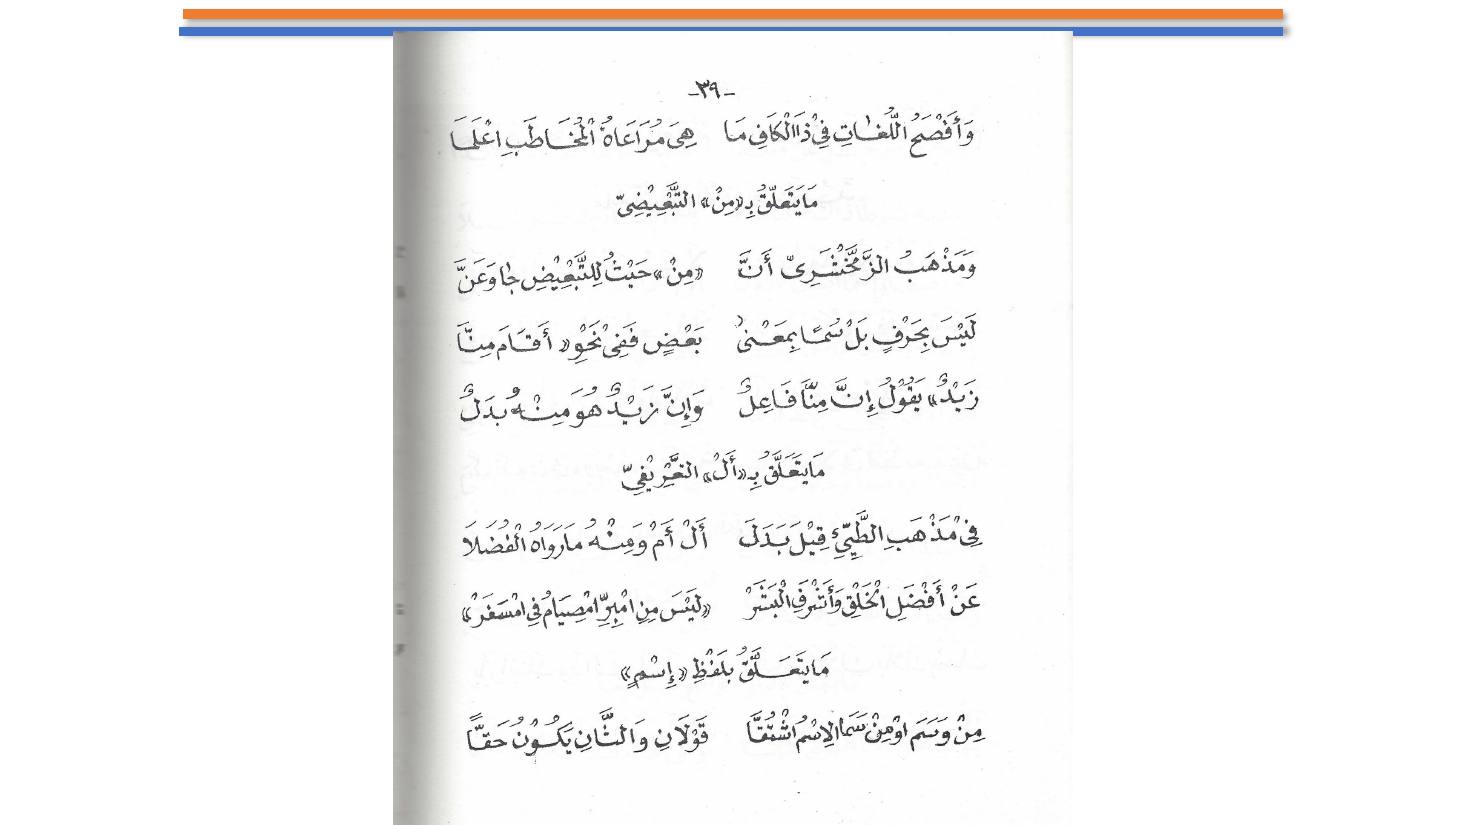 -٣٩-
وَأَفْصَحُ اللُّغَاتِ فِيْ ذَا الْكَافِ مَا هِيَ مُرَاعَاةُ الْمُخَاطَبِ اعْلَمَا
مَا يَتَعَلَّقُ بِـ«مِنْ» التَّبْعِيْضِيّ
وَمَذْهَبُ الزَّمَخْشَرِىّ أَنَّ «مِنْ» حَيْثُ لِلتَّبْعِيْضِ جَا وَعَنَّ
لَيْسَ بِحَرْفٍ بَلْ سُمًا بِمَعْنىٰ بَعْضٍ فَفِيْ نَحْوِ «أَقَامَ مِنَّا
زَيْدٌ» يَقُوْلُ إِنَّ مِنَّا فَاعِلُ وَإِنَّ زَيْدٌ هُوَ مِنْهُ بَدَلُ
مَا يَتَعَلَّقُ بِـ«أَلْ» التَّعْرِيْفِيّ
فِيْ مَذْهَبِ الطَّيِّيْءِ قِيْلَ بَدَلَ أَلْ أَمْ وَمِنْهُ مَا رَوَاهُ الْفُضَلَا
عَنْ أَفْضَلِ الْخَلْقِ وَأَشْرَفِ الْبَشَرْ «لَيْسَ مِنِ امْبِرِّ امْصِيَامُ فِي امْسَفَرْ»
مَا يَتَعَلَّقُ بِلَفْظِ «إِسْمٍ»
مِنْ وَسَمَ اوْ مِنْ سَمَا الِاسْمُ اشْتُقَّا قَوْلَانِ وَالثَّانِ يَكُوْنُ حَقًّا